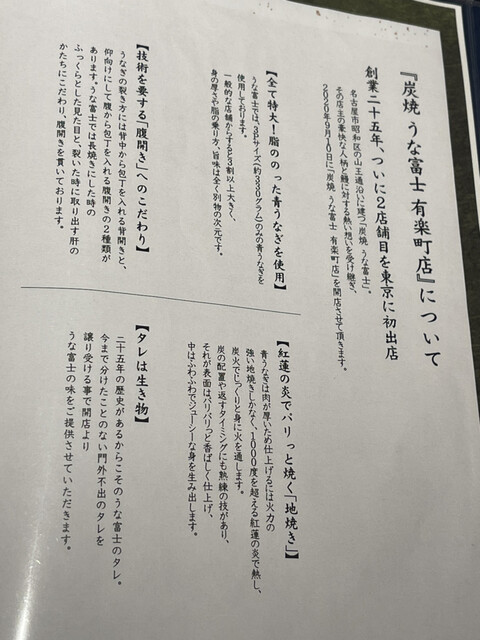 『炭焼 うな富士 有楽町店』について
創業二十五年、ついに2店舗目を東京に初出店
名古屋市昭和区の山王通沿いに建つ「炭焼 うな富士」。
その店主の豪快な人柄と鰻に対する熱い想いを受け継ぎ、
2020年9月10日に「炭焼 うな富士 有楽町店」を開店させて頂きます。
【全て特大！脂ののった青うなぎを使用】
うな富士では、3Pサイズ(約330グラム)のみの青うなぎを
使用しております。
一般的な店舗からすると3割以上大きく、
身の厚さや脂の乗り方、旨味は全く別物の次元です。
【技術を要する「腹開き」へのこだわり】
うなぎの裂き方には背中から包丁を入れる背開きと、
仰向けにして腹から包丁を入れる腹開きの2種類が
あります。うな富士では長焼きにした時の
ふっくらとした見た目と、裂いた時に取り出す肝の
かたちにこだわり、腹開きを貫いております。
【紅蓮の炎でパリっと焼く「地焼き」】
青うなぎは肉が厚いため仕上げるには火力の
強い地焼きしかなく、1000度を超える紅蓮の炎で熱し、
炭火でじっくりと身に火を通します。
炭の配置や返すタイミングにも熟練の技があり、
それが表面はパリパリっと香ばしく仕上げ、
中はふわふわでジューシーな身を生み出します。
【タレは生き物】
二十五年の歴史があるからこそのうな富士のタレ。
今まで分けたことのない門外不出のタレを
譲り受ける事で開店より
うな富士の味をご提供させていただきます。